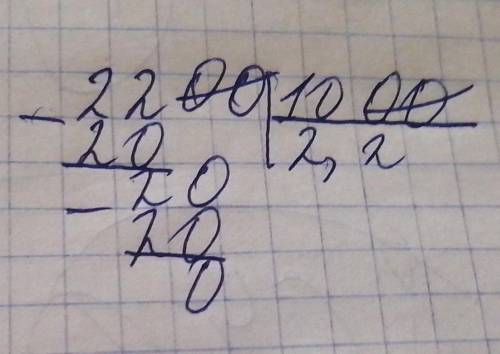 - 2200 | 1000
20 | 2,2
- 20
20
0